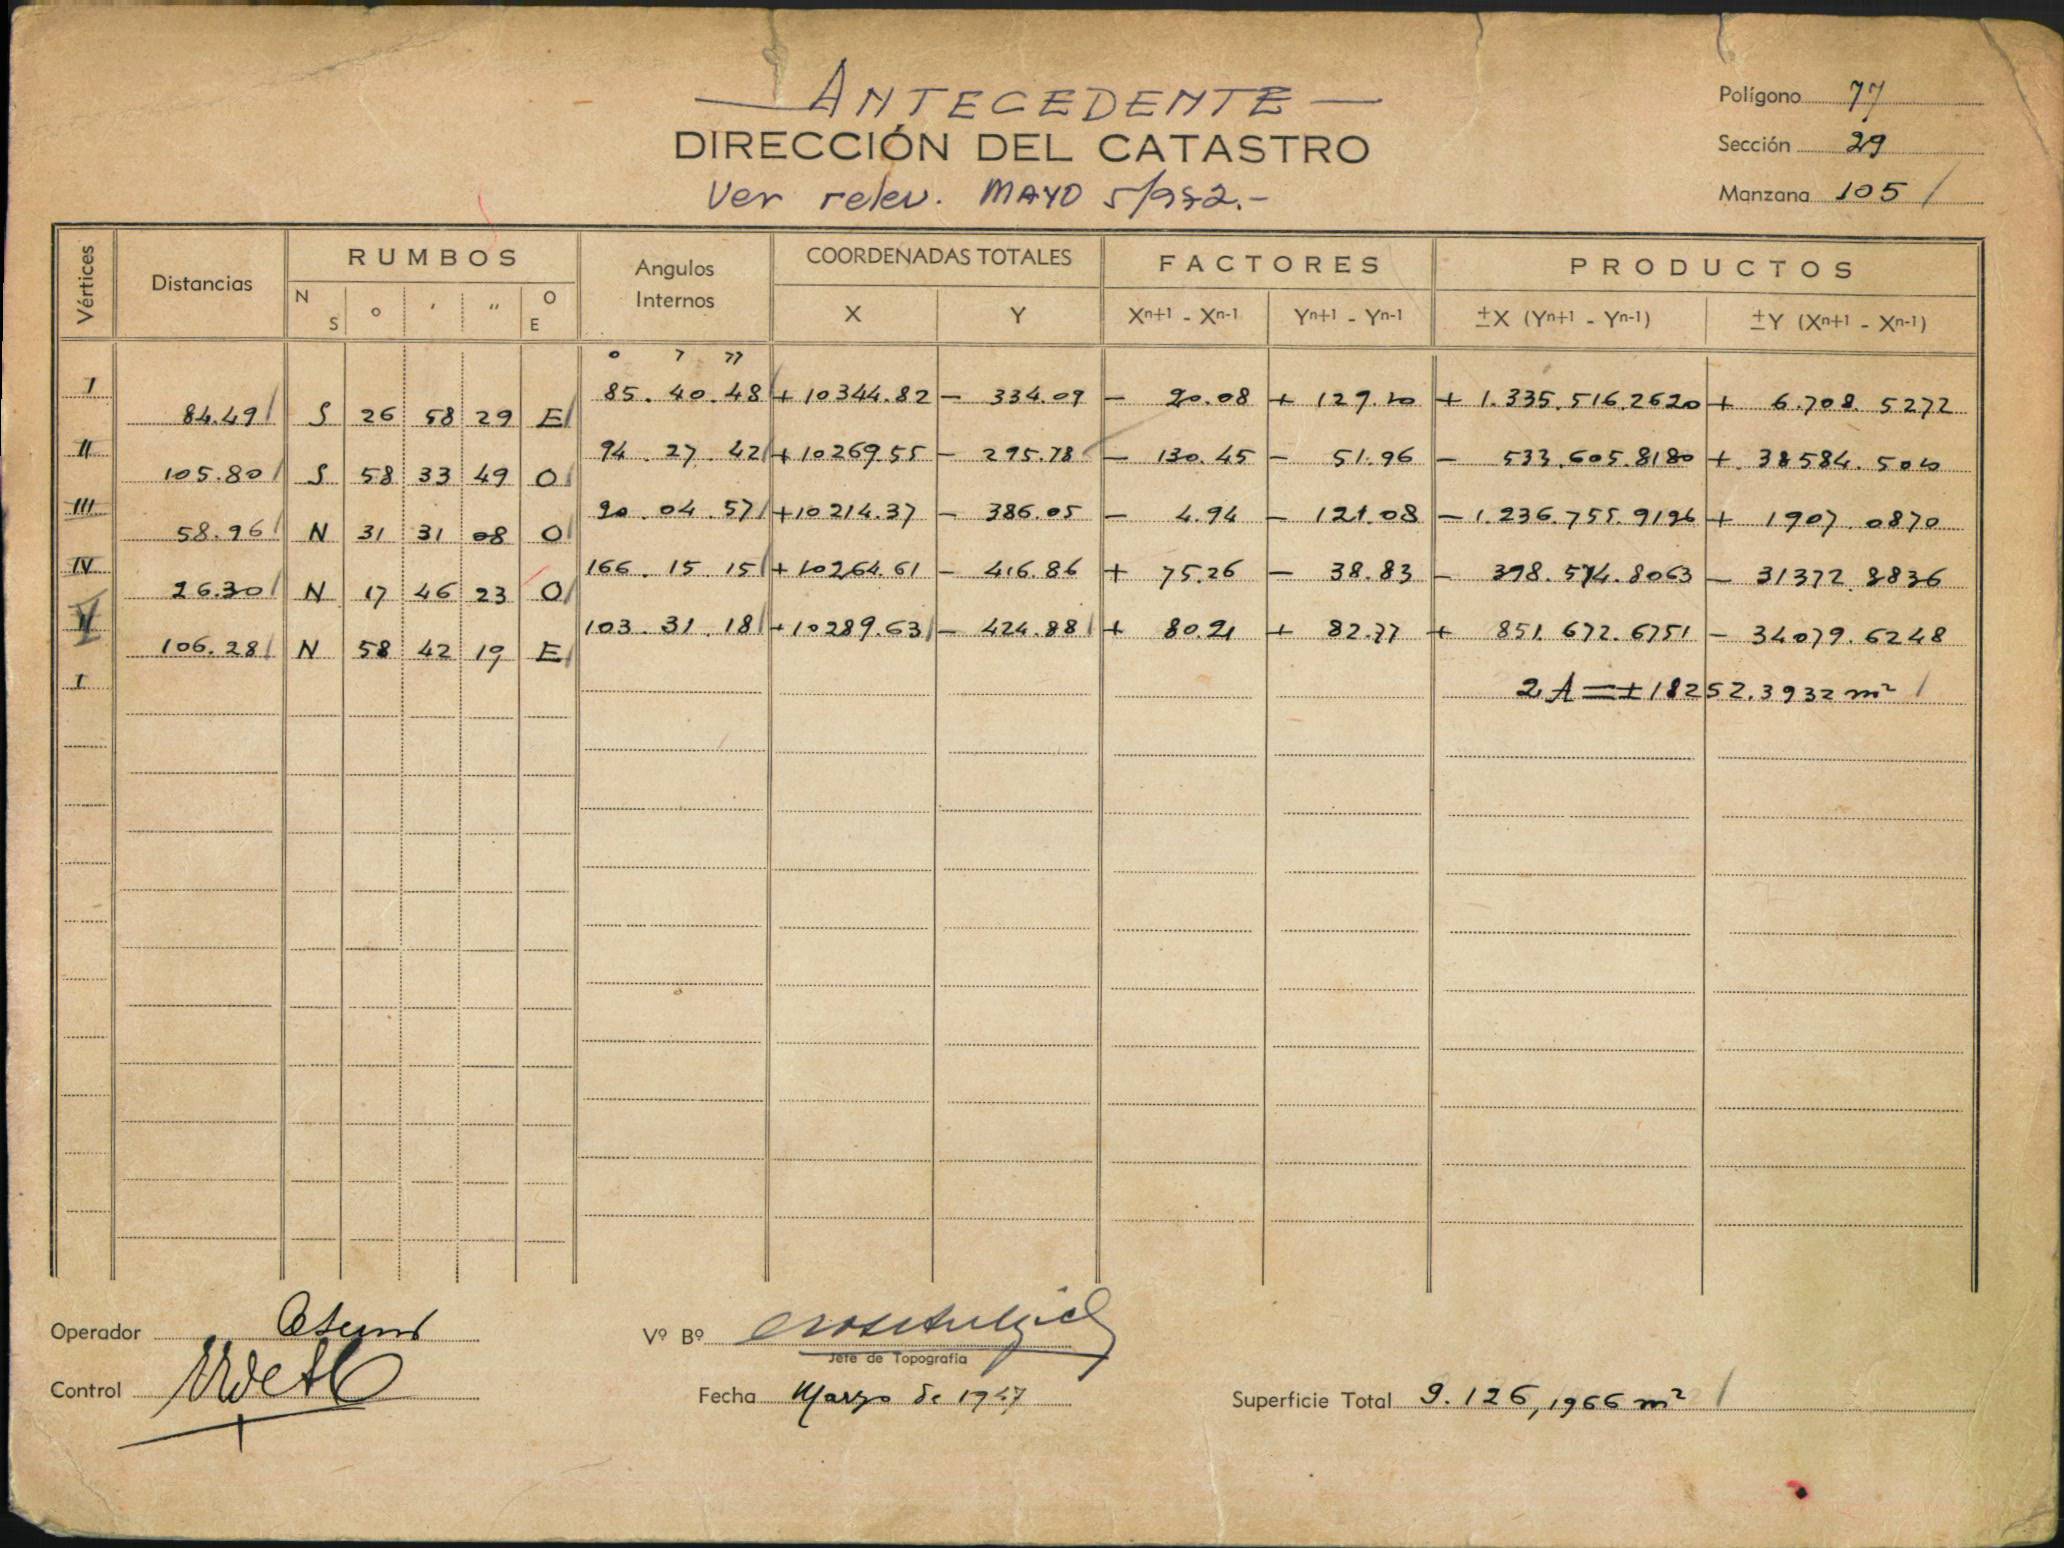 — ANTECEDENTE —
DIRECCIÓN DEL CATASTRO
Ver relev. MAYO 5/952.-
Polígono 77
Sección 29
Manzana 105 /
Vértices Distancias RUMBOS Angulos Internos COORDENADAS TOTALES FACTORES PRODUCTOS
N S ° ' " O E X Y Xn+1 - Xn-1 Yn+1 - Yn-1 ±X (Yn+1 - Yn-1) ±Y (Xn+1 - Xn-1)
° ' "
I 85. 40. 48 +10344.82 - 334.09 - 20.08 + 129.10 + 1.335.516.2620 + 6.708.5272
84.49 S 26 58 29 E
II 94. 27. 42 +10269.55 - 295.78 - 130.45 - 51.96 - 533.605.8180 + 38584.5010
105.80 S 58 33 49 O
III 90. 04. 57 +10214.37 - 386.05 - 4.94 - 121.08 - 1.236.755.9196 + 1907.0870
58.96 N 31 31 08 O
IV 166. 15. 15 +10264.61 - 416.86 + 75.26 - 38.83 - 398.574.8063 - 31372.8836
26.30 N 17 46 23 O
V 103. 31. 18 +10289.63 - 424.88 + 80.21 + 82.77 + 851.672.6751 - 34079.6248
106.28 N 58 42 19 E
I 2A = ± 18252.3932 m²
Operador
Control
Vº Bº
Jefe de Topografía
Fecha Marzo de 1947
Superficie Total 9.126,1966 m²